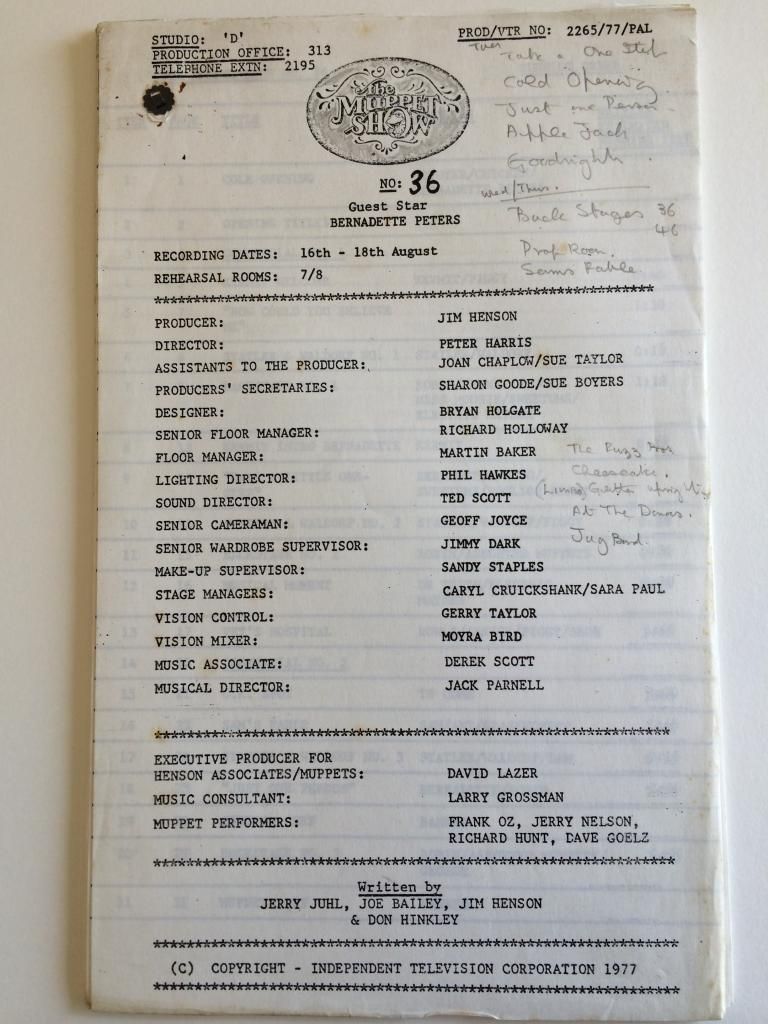 STUDIO: 'D'
PROD/VTR NO: 2265/77/PAL
PRODUCTION OFFICE: 313
TELEPHONE EXTN: 2195
Tues Take a One Step
Cold Opening
Just one Person
Apple Jack
Goodnights.
The
MUPPET
SHOW
NO: 36
Wed/Thurs.
Guest Star
BERNADETTE PETERS
Back Stages 36
46
Prop Room.
Sams Fable.
RECORDING DATES: 16th - 18th August
REHEARSAL ROOMS: 7/8
PRODUCER: JIM HENSON
DIRECTOR: PETER HARRIS
ASSISTANTS TO THE PRODUCER: JOAN CHAPLOW/SUE TAYLOR
PRODUCERS' SECRETARIES: SHARON GOODE/SUE BOYERS
DESIGNER: BRYAN HOLGATE
SENIOR FLOOR MANAGER: RICHARD HOLLOWAY
FLOOR MANAGER: MARTIN BAKER
LIGHTING DIRECTOR: PHIL HAWKES
SOUND DIRECTOR: TED SCOTT
SENIOR CAMERAMAN: GEOFF JOYCE
SENIOR WARDROBE SUPERVISOR: JIMMY DARK
MAKE-UP SUPERVISOR: SANDY STAPLES
STAGE MANAGERS: CARYL CRUICKSHANK/SARA PAUL
VISION CONTROL: GERRY TAYLOR
VISION MIXER: MOYRA BIRD
MUSIC ASSOCIATE: DEREK SCOTT
MUSICAL DIRECTOR: JACK PARNELL
The
Cheesecake.
(Limbo)
At The Dance.
Jug Band.
EXECUTIVE PRODUCER FOR
HENSON ASSOCIATES/MUPPETS: DAVID LAZER
MUSIC CONSULTANT: LARRY GROSSMAN
MUPPET PERFORMERS: FRANK OZ, JERRY NELSON,
RICHARD HUNT, DAVE GOELZ
Written by
JERRY JUHL, JOE BAILEY, JIM HENSON
& DON HINKLEY
(C) COPYRIGHT - INDEPENDENT TELEVISION CORPORATION 1977